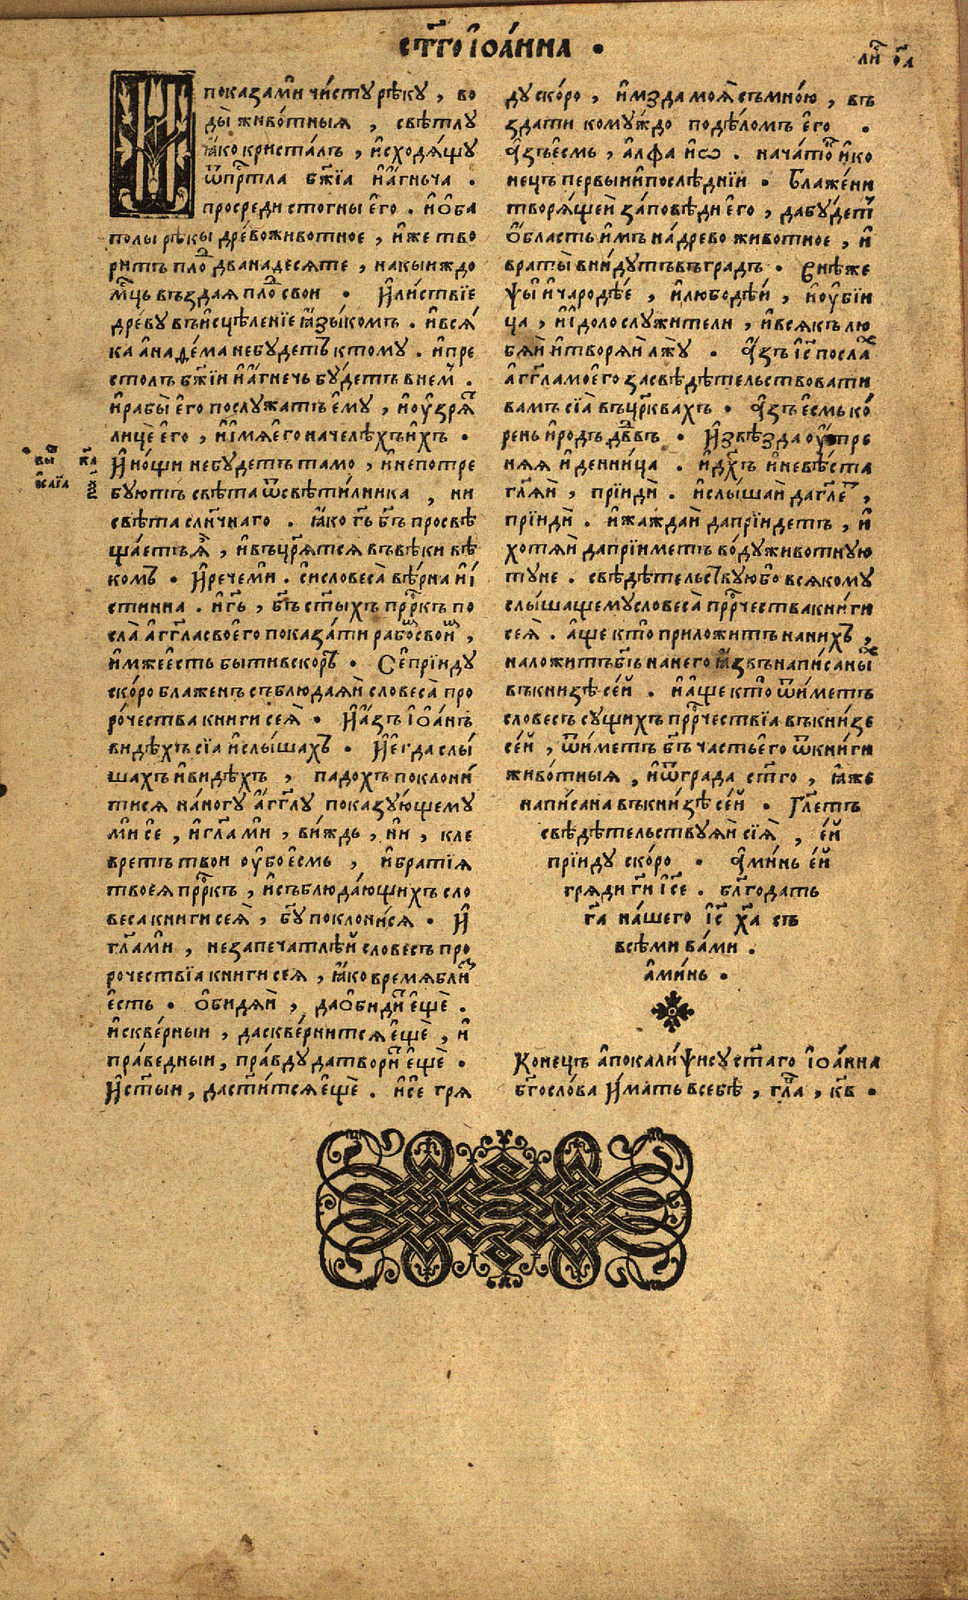 ст҃го їѡа́нна •
ли҃ ѻ҃а
И показа́ми чи́сту рѣ́ку , во
ды живо́тныя , свѣ́тлу
ꙗ҆́ко кристаль , и҆сходя́щу
ѿпрⷭ҇тла бж҃їа и҆а҆́гньча .
просреди стогны е҆го . и҆ ѻ҆ба
полы рѣкы дре́во живо́тное , и҆же тво
ри́ть плоⷣ дванадесяте , накыи ждо
мцⷭ҇ь въздая плоⷣ свои • И҆ ли́ствїе
дре́ву въ и҆сцѣле́нїе ꙗ҆зы́комъ . и҆ вся́
ка а҆на́ѳема не бу́детъ ктому . и҆ пре
сто́лъ бж҃їи и҆ а҆́гнечь бу́детъ в нем̾ .
и҆ рабы̀ е҆го послу́жатъ е҆му , и҆ оу҆́зряⷮ
лицѐ е҆го , и҆ и҆́мя е҆го на челѣхъ и҆хъ •
И҆ но́щи не бу́детъ та́мо , и҆ непотре
бу́ютъ свѣ́та ѿ свѣти́лника , ни
свѣ́та слн҃чнаго . ꙗ҆́ко гь҃ бг҃ъ просвѣ
ща́етъ ꙗ҆̀ , и҆ въцр҃я́тся въ вѣ́ки вѣ
ко́мъ • И҆ рече́ ми . си словеса̀ вѣ́рна и҆ и҆́
стинна . и҆ гь҃ , бг҃ъ ст҃ы́хъ прⷪ҇ркъ по
сла̀ а҆́гг҃ла своего показа́ти рабоⷨ свои̾ ,
и҆мже е҆сть бы́ти вско́рѣ • Се́ прїи́ду
ско́ро блаженъ съблюда́яй словеса̀ про
ро́чества книги сея̀ • И҆ а҆́зъ і҆ѡ҆а́нъ
ви́дѣхъ сїа и҆ слы́шахъ • И҆ е҆гда слы́
шахъ и҆ ви́дѣхъ , падохъ поклони́
тися на́ ногу а҆́гг҃лу показу́ющему
ми се , и҆ гл҃а ми , ви́ждь , ни , кле
вретъ твои оу҆бо е҆смь , и҆ бра́тїя
твоея прⷪ҇ркъ , и҆ съблюда́ющихъ сло
веса книги сея̀ , бг҃у поклони́ся • И҆
гл҃а ми , не запечатлѣ́й словесъ про
рочествїа книги сея , ꙗ҆́ко время блиⷥ
е҆сть • ѻ҆би́дяй , да ѻ҆би́диⷮ е҆щѐ .
и҆ скве́рныи , да скве́рнится е҆щѐ , и҆
пра́ведныи , пра́вду да твориⷮ е҆щѐ •
И҆ ст҃ыи , да ст҃и́тся е҆щѐ . и҆ се́ гря
ду ско́ро , и҆ мзда моя̀ съ мно́ю , въ
зда́ти кому́ждо по дѣ́ломъ е҆го •
А҆́зъ е҆смь , а҆́лфа и҆ ѡ . нача́тоⷦ и҆ ко
нецъ первыи и҆ послѣ́днїи • Блаже́ни
творя́щеи за́повѣди е҆го , да бу́детъ
ѻ҆́бласть и҆́мъ на дре́во живо́тное , и҆
враты̀ вни́дутъ въ гра́дъ • Внѣ́ же
псы̀ и҆ чародѣ́е , и҆ любодѣ́и , и҆ оу҆бїи
ца , и҆ і҆долослужи́тели , и҆ вся́къ лю
бя́й и҆ творя́й лжу • А҆́зъ і҆с҃ посла́ⷯ
а҆́гг҃ла моего засвѣдѣ́тельствовати
ва́мъ сїа̀ въ цр҃квахъ • А҆́зъ е҆смь ко́
рень и҆ ро́дъ дв҃въ • И҆ звѣзда оу҆́тре
няя и҆ денни́ца . и҆ дх҃ъ и҆ невѣ́ста
гл҃яй , прїиди̂ . и҆ слы́шай да гл҃еⷮ ,
прїиди̂ . и҆ жа́ждай да прїи́детъ , и҆
хотя́й да прїи́метъ во́ду живо́тную
ту́не . свѣдѣ́тельствую бо вся́кому
слы́шащему словеса̀ прⷪ҇рчества кни́ги
сея̀ . а҆́ще кто̀ приложи́тъ на ни́хъ ,
наложи́тъ бг҃ъ на него ꙗ҆́звъ написаныⷯ
въ кни́зѣ се́й . и҆ а҆́ще кто̀ ѿи́метъ
слове́съ су́щихъ прⷪ҇рчествїа въ кни́зе
се́й , ѿи́метъ бг҃ъ ча́сть е҆го ѿ кни́ги
живо́тныя , и҆ ѿ гра́да ст҃го , ꙗ҆́же
написана въ кни́зѣ се́й • Гл҃етъ
свѣдѣ́тельствуяй сїя̀ , е҆́й
прїи́ду ско́ро • А҆ми́нь е҆́й
гряди гн҃и і҆с҃е . блг҃ода́ть
га҃ на́шего і҆с҃ ха҃ съ
всѣ́ми ва́ми .
а҆ми́нь •
Коне́цъ а҆покали́ѱису ст҃а́го і҆ѡ҆а́нна
бг҃осло́ва И҆́мать в себѣ̀ , гл҃а , к҃в •